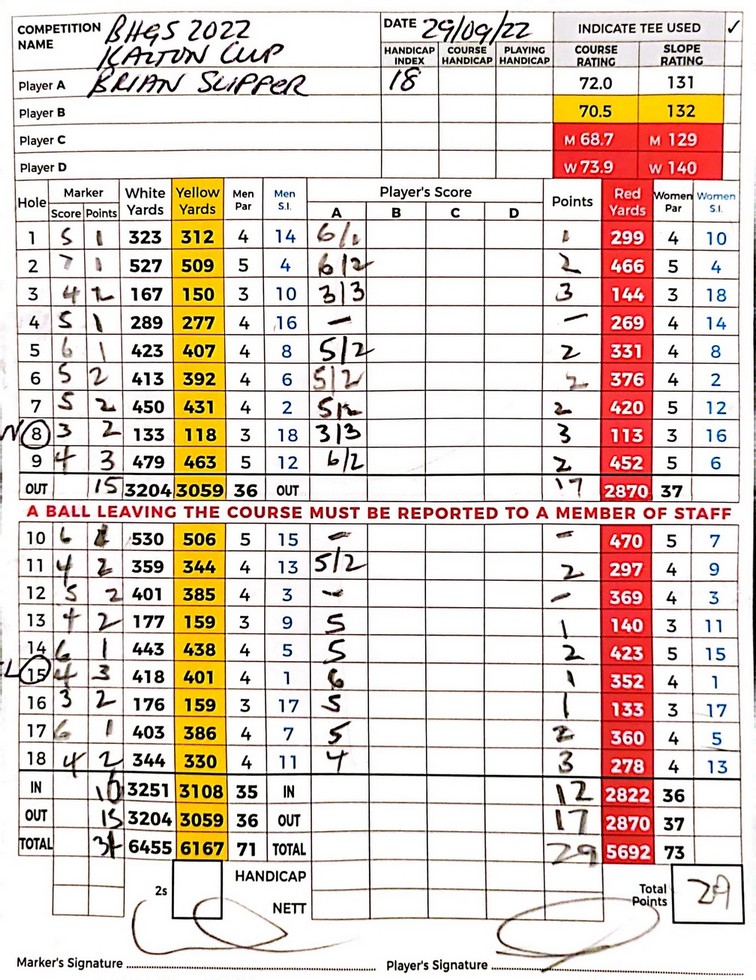 COMPETITION NAME BHGS 2022 DATE 29/09/22 INDICATE TEE USED ✓
KALTON CUP HANDICAP INDEX COURSE HANDICAP PLAYING HANDICAP COURSE RATING SLOPE RATING
Player A BRIAN SLIPPER 18 72.0 131
Player B 70.5 132
Player C M 68.7 M 129
Player D W 73.9 W 140
Hole Marker White Yards Yellow Yards Men Par Men S.I. Player's Score Points Red Yards Women Par Women S.I.
Score Points A B C D
1 5 1 323 312 4 14 6/1 1 299 4 10
2 7 1 527 509 5 4 6/2 2 466 5 4
3 4 2 167 150 3 10 3/3 3 144 3 18
4 5 1 289 277 4 16 – – 269 4 14
5 6 1 423 407 4 8 5/2 2 331 4 8
6 5 2 413 392 4 6 5/2 2 376 4 2
7 5 2 450 431 4 2 5/2 2 420 5 12
N 8 3 2 133 118 3 18 3/3 3 113 3 16
9 4 3 479 463 5 12 6/2 2 452 5 6
OUT 15 3204 3059 36 OUT 17 2870 37
A BALL LEAVING THE COURSE MUST BE REPORTED TO A MEMBER OF STAFF
10 6 530 506 5 15 – – 470 5 7
11 4 2 359 344 4 13 5/2 2 297 4 9
12 5 2 401 385 4 3 – – 369 4 3
13 4 2 177 159 3 9 5 1 140 3 11
14 6 1 443 438 4 5 5 2 423 5 15
L 15 4 3 418 401 4 1 6 1 352 4 1
16 3 2 176 159 3 17 5 1 133 3 17
17 6 1 403 386 4 7 5 2 360 4 5
18 4 2 344 330 4 11 4 3 278 4 13
IN 3251 3108 35 IN 12 2822 36
OUT 15 3204 3059 36 OUT 17 2870 37
TOTAL 6455 6167 71 TOTAL 29 5692 73
2s HANDICAP Total Points 29
NETT
Marker's Signature Player's Signature